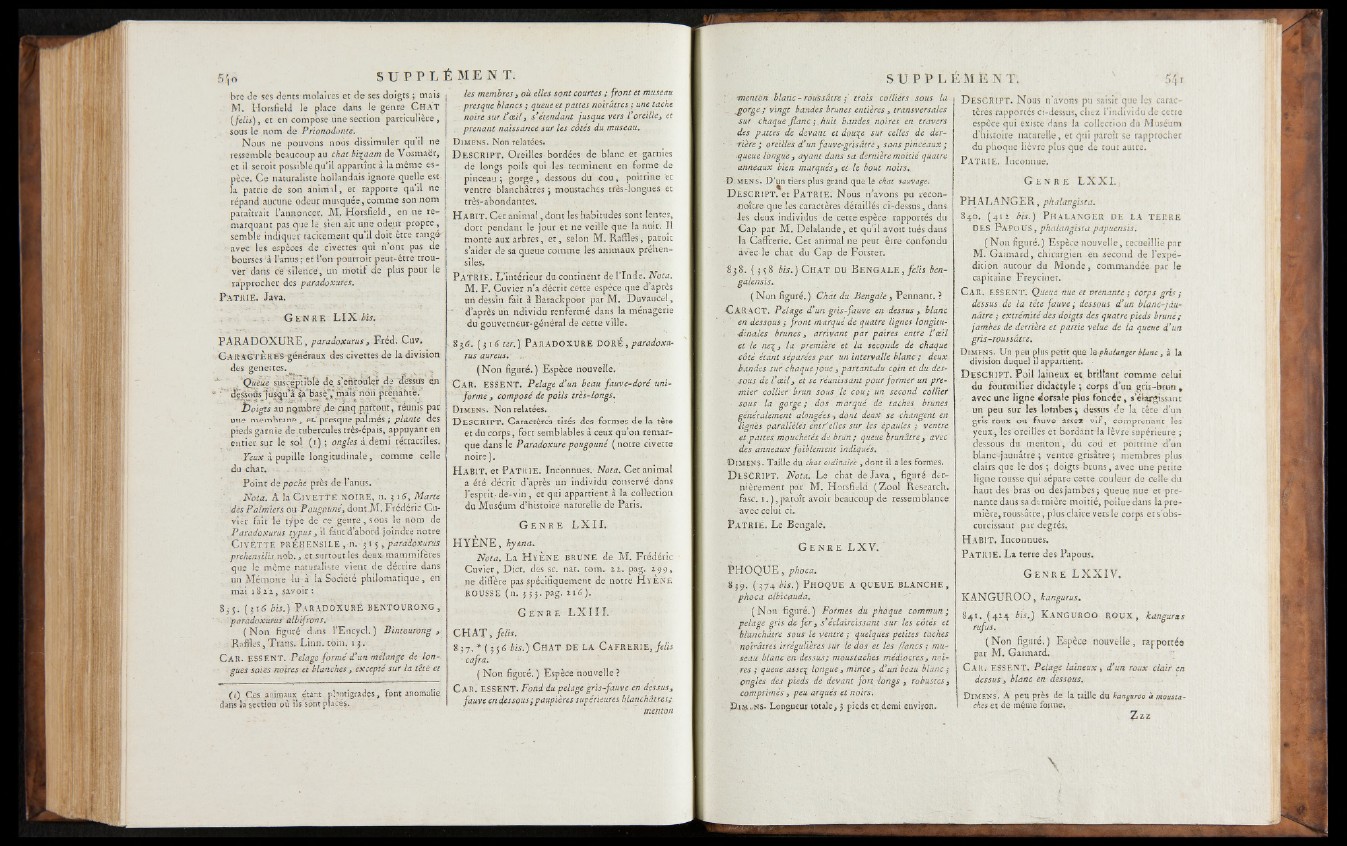 540 SUPPLÉMENT.
bre de ses dents molaires et de ses doigts ; mais
M. Horsfield le place dans le genre CHAT
(felis), et en compose une section particulière,
sous le nom de Prionodonte.
Nous ne pouvons nous dissimuler qu'il ne
ressemble beaucoup au chat bizaam de Vosmaër,
et il seroit possible qu'il appartînt à la même es-
pèce. Ce naturaliste hollandais ignore quelle est
la patrie de son animal, et rapporte qu'il ne
répand aucune odeur musquée, comme son nom
paraîtrait l'annoncer. M. Horsfield, en ne re-
marquant pas que le sien ait une odeur propre,
semble indiquer tacitement qu'il doit être rangé
avec les espèces de civettes qui n'ont pas de
bourses à l'anus ; et l'on pourroit peut-être trou-
ver dans ce silence, un motif de plus pour le
rapprocher des paradoxures.
PATRIE. Java.
GENRE LIX bis.
PARADOXURE, paradoxurus, Fréd. Cuv.
CARACTÈRES généraux des civettes de la division
des genettes.
Queue susceptible de s'enrouler de dessus en
dessous jusqu'à sa base, mais non prenante.
Doigts au nombre de cinq partout, réunis par
une membrane, et presque palmés ; plante des
pieds garnie de tubercules très-épais, appuyant en
entier sur le sol (1) ; ongles à demi rétractiles.
Yeux à pupille longitudinale, comme celle
du chat.
Point de poche près de l'anus.
Nota. A la CIVETTE NOIRE, n. 316, Marte
des Palmiers ou Pougouné, dont M. Frédéric Cu-
vier fait le type de ce genre, sous le nom de
Paradoxurus typus, il faut d'abord joindre notre
CIVETTE PRÉHENSILE, n. 315, paradoxurus
prehensilis nob., et surtout les deux mammifères
que le même naturaliste vient de décrire dans
un Mémoire lu à la Société philomatique, en
mai 1822, savoir :
835. (316 bis.) PARADOXURE BENTOURONG,
paradoxurus albifrons.
(Non figuré dans l'Encycl.) Bintourong,
Raffles, Trans. Linn. tom. 13.
CAR. ESSENT. Pelage formé d'un mélange de lon-
gues soies noires et blanches, excepté sur la tête et
(1) Ces animaux étant plantigrades, font anomalie
dans la section où ils sont placés.
les membres, où elles sont courtes ; front et museau
presque blancs ; queue et pattes noirâtres ; une tache
noire sur l'œil, s'étendant jusque vers l'oreille, et
prenant naissance sur les côtés du museau.
DIMENS. Non relatées.
DESCRIPT. Oreilles bordées de blanc et garnies
de longs poils qui les terminent en forme de
pinceau ; gorge, dessous du cou, poitrine et
ventre blanchâtres ; moustaches très-longues et
très-abondantes.
HABIT. Cet animal, dont les habitudes sont lentes,
dort pendant le jour et ne veille que la nuit. Il
monte aux arbres, et, selon M. Raffles, paroît
s'aider de sa queue comme les animaux préhen-
siles.
PATRIE. L'intérieur du continent de l'Inde. Nota.
M. F. Cuvier n'a décrit cette espèce que d'après
un dessin fait à Barackpoor par M. Duvaucel,
d'après un individu renfermé dans la ménagerie
du gouverneur-général de cette ville.
836. (316 ter.) PARADOXURE DORÉ, paradoxu-
rus aureus.
(Non figuré.) Espèce nouvelle.
CAR. ESSENT. Pelage d'un beau fauve-doré uni-
forme, composé de poils très-longs.
DIMENS. Non relatées.
DESCRIPT. Caractères tirés des formes de la tête
et du corps, fort semblables à ceux qu'on remar-
que dans le Paradoxure pougouné (notre civette
noire).
HABIT. et PATRIE. Inconnues. Nota. Cet animal
a été décrit d'après un individu conservé dans
l'esprit-de-vin, et qui appartient à la collection
du Muséum d'histoire naturelle de Paris.
GENRE LXII.
HYÈNE, hyæna.
Nota. La HYÈNE BRUNE de M. Frédéric
Cuvier, Dict. des sc. nat. tom. 22. pag. 299,
ne diffère pas spécifiquement de notre HYÈNE
ROUSSE (n. 333. pag. 216).
GENRE LXIII.
CHAT, felis.
837. * (356 bis.) CHAT DE LA CAFRERIE, felis
cafra.
(Non figuré.) Espèce nouvelle ?
CAR. ESSENT. Fond du pelage gris-fauve en dessus,
fauve en dessous ; paupières supérieures blanchâtres ;
menton
SUPPLÉMENT. 541
menton blanc-roussâtre ; trois colliers sous la
gorge ; vingt bandes brunes entières, transversales
sur chaque flanc ; huit bandes noires en travers
des pattes de devant et douze sur celles de der-
rière ; oreilles d'un fauve-grisâtre, sans pinceaux ;
queue longue, ayant dans sa dernière moitié quatre
anneaux bien marqués, et le bout noirs.
DIMENS. D'un tiers plus grand que le chat sauvage.
DESCRIPT. et PATRIE. Nous n'avons pu recon-
noître que les caractères détaillés ci-dessus, dans
les deux individus de cette espèce rapportés du
Cap par M. Delalande, et qu'il avoit tués dans
la Cafrerie. Cet animal ne peut être confondu
avec le chat du Cap de Forster.
838. (358 bis.) CHAT DU BENGALE, felis ben-
galensis.
(Non figuré.) Chat du Bengale, Pennant. ?
CARACT. Pelage d'un gris-fauve en dessus, blanc
en dessous ; front marqué de quatre lignes longitu-
dinales brunes, arrivant par paires entre l'œil
et le nez, la première et la seconde de chaque
côté étant séparées par un intervalle blanc ; deux
bandes sur chaque joue, partant du coin et du des-
sous de l'œil, et se réunissant pour former un pre-
mier collier brun sous le cou ; un second collier
sous la gorge ; dos marqué de taches brunes
généralement alongées, dont deux se changent en
lignes parallèles entr'elles sur les épaules ; ventre
et pattes mouchetés de brun ; queue brunâtre, avec
des anneaux foiblement indiqués.
DIMENS. Taille du chat ordinaire, dont il a les formes.
DESCRIPT. Nota. Le chat de Java, figuré der-
nièrement par M. Horsfield (Zool Research.
fasc. 1.), paroît avoir beaucoup de ressemblance
avec celui ci.
PATRIE. Le Bengale.
GENRE LXV.
PHOQUE, phoca.
839. (374 bis.) PHOQUE A QUEUE BLANCHE,
phoca albicauda.
(Non figuré.) Formes du phoque commun ;
pelage gris de fer, s'éclaircissant sur les côtés et
blanchâtre sous le ventre ; quelques petites taches
noirâtres irrégulières sur le dos et les flancs ; mu-
seau blanc en dessus ; moustaches médiocres, noi-
res ; queue assez longue, mince, d'un beau blanc ;
ongles des pieds de devant fort longs, robustes,
comprimés, peu arqués et noirs.
DIMENS. Longueur totale, 3 pieds et demi environ.
DESCRIPT. Nous n'avons pu saisir que les carac-
tères rapportés ci-dessus, chez l'individu de cette
espèce qui existe dans la collection du Muséum
d'histoire naturelle, et qui paroît se rapprocher
du phoque lièvre plus que de tout autre.
PATRIE. Inconnue.
GENRE LXXI.
PHALANGER, phalangista.
840. (412 bis.) PHALANGER DE LA TERRE
DES PAPOUS, phalangista papuensis.
(Non figuré.) Espèce nouvelle, recueillie par
M. Gaimard, chirurgien en second de l'expé-
dition autour du Monde, commandée par le
capitaine Freycinet.
CAR. ESSENT. Queue nue et prenante ; corps gris ;
dessus de la tête fauve ; dessous d'un blanc-jau-
nâtre ; extrémité des doigts des quatre pieds brune ;
jambes de derrière et partie velue de la queue d'un
gris-roussâtre.
DIMENS. Un peu plus petit que le phalanger blanc, à la
division duquel il appartient.
DESCRIPT. Poil laineux et brillant comme celui
du fourmilier didactyle ; corps d'un gris-brun,
avec une ligne dorsale plus foncée, s'élargissant
un peu sur les lombes ; dessus de la tête d'un
gris roux ou fauve assez vif, comprenant les
yeux, les oreilles et bordant la lèvre supérieure ;
dessous du menton, du cou et poitrine d'un
blanc-jaunâtre ; ventre grisâtre ; membres plus
clairs que le dos ; doigts bruns, avec une petite
ligne rousse qui sépare cette couleur de celle du
haut des bras ou des jambes ; queue nue et pre-
nante dans sa dernière moitié, poilue dans la pre-
mière, roussâtre, plus claire vers le corps et s'obs-
curcissant par degrés.
HABIT. Inconnues.
PATRIE. La terre des Papous.
GENRE LXXIV.
KANGUROO, kangurus.
841. (424 bis.) KANGUROO ROUX, kangurus
rufus.
(Non figuré.) Espèce nouvelle, rapportée
par M. Gaimard.
CAR. ESSENT. Pelage laineux, d'un roux clair en
dessus, blanc en dessous.
DIMENS. A peu près de la taille du kanguroo à mousta-
ches et de même forme.
Zzz